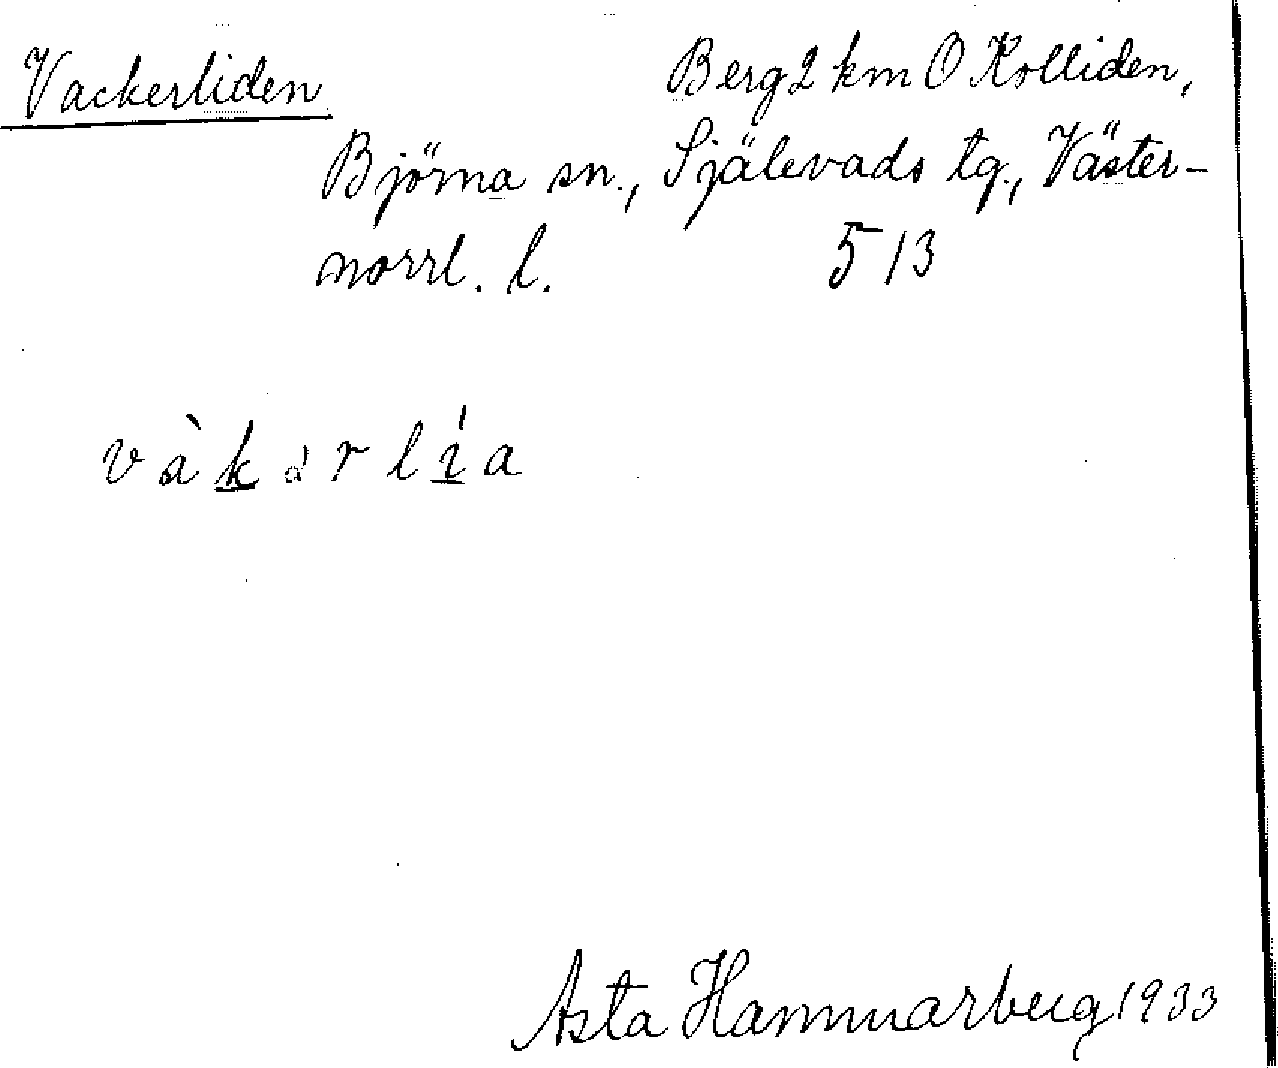 Vackerliden
Berg 2 km O Kolliden,
Björna sn., Själevads tg., Väster-
norrl. l. 513
vàkərlía
Asta Hammarberg 1933